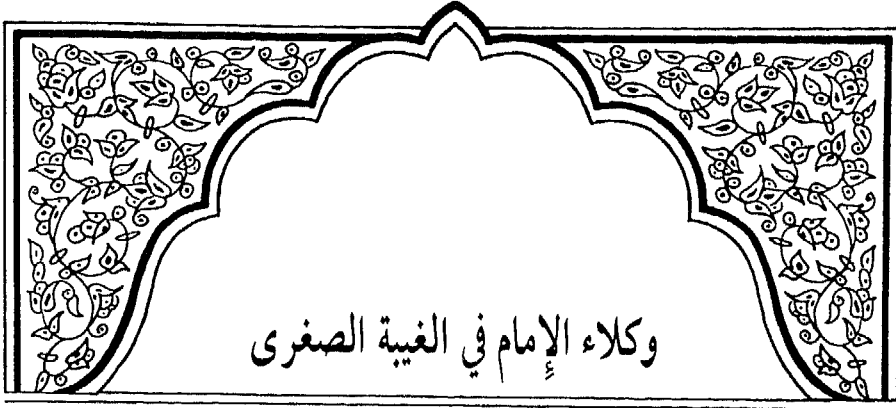 وكلاء الإِمام في الغيبة الصغرى